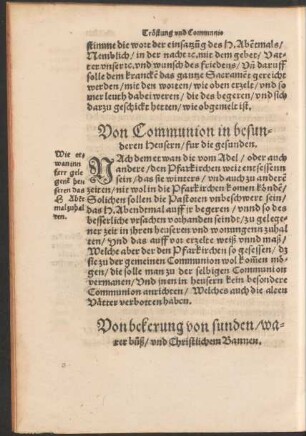 Tröstung vnd Communio
stimme die wort der einsatzũg des H. Abẽtmals/
Nemblich/ in der nacht ıc. mit dem gebet/ Vat-
ter vnser ıc. vnd wunsch des friedens/ Vñ darauff
solle dem krancкẽ das gantze Sacramẽt gereicht
werden/ mit den worten/ wie oben erzelt/ vnd so
mer leuth dabei weren/ die des begeren/ vnd sich
darzu geschickt hetten/ wie obgemelt ist.
Von Communion in besun-
deren Heusern/ fur die gesunden.
Wie etwa
wann
ferr gele
gens bei
seren das
H Abẽt
mal zuhal
ten.
NAch dem etwan die vom Adel/ oder auch
andere/ den Pfarkirchen weit entsessenn
sein/ das sie winters/ vnd auch zu anderẽ
zeiten/ nit wol in die Pfarkirchen komen köndẽ/
Solichen sollen die Pastoren vnbeschwert sein/
das H. Abendmal auff ir begeren/ vnnd so des
besserliche vrsachen vorhanden seindt/ zu gelege-
ner zeit in ihren heuseren vnd wonungenn zuhal-
ten/ Vnd das auff vor erzelte weiß vnnd maß/
Welche aber der den Pfarkirchen so gesessen/ dz
sie zu der gemeinen Communion wol komen mö-
gen/ die solle man zu der selbigen Communion
vermanen/ Vnd inen in heusern kein besondere
Communion anrichten/ Welches auch die alten
Vätter verbotten haben.
Von bekerung von sunden/ wa-
rer büß/ vnd Christlichem Bannen.